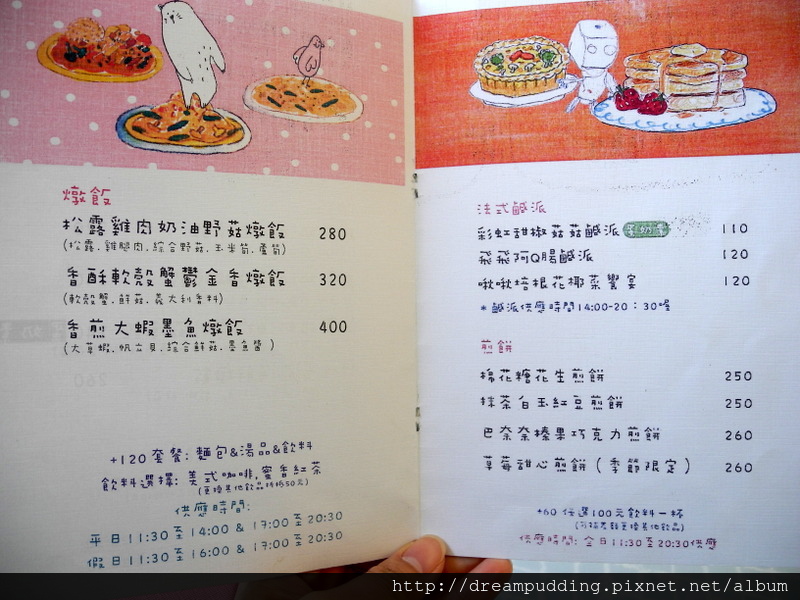 燉飯
松露雞肉奶油野菇燉飯 280
(松露.雞腿肉.綜合野菇.玉米筍.蘆筍)
香酥軟殼蟹鬱金香燉飯 320
(軟殼蟹.鮮菇.義大利香料)
香煎大蝦墨魚燉飯 400
(大草蝦.帆立貝.綜合鮮菇.墨魚醬)
+120 套餐:麵包&湯品&飲料
飲料選擇:美式咖啡,蜜香紅茶
(更換其他飲品折抵50元)
供應時間:
平日11:30至14:00 & 17:00至20:30
假日11:30至16:00 & 17:00至20:30
法式鹹派
彩虹甜椒菇菇鹹派 蛋奶素 110
飛飛阿Q腸鹹派 120
啾啾培根花椰菜饗宴 120
*鹹派供應時間14:00-20:30喔
煎餅
棉花糖花生煎餅 250
抹茶白玉紅豆煎餅 250
巴奈奈榛果巧克力煎餅 260
草莓甜心煎餅(季節限定) 260
+60 任選100元飲料一杯
(可補差額更換其他飲品)
供應時間:全日11:30至20:30供應
http://dreampudding.pixnet.net/album